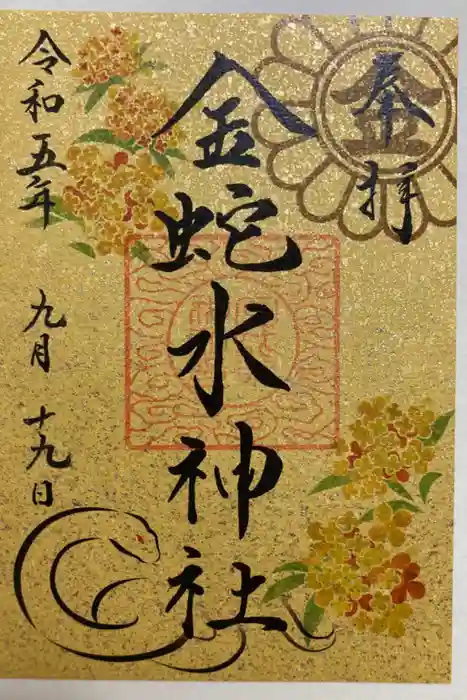 奉拝
金
金蛇水神社
令和五年
九月
十九日